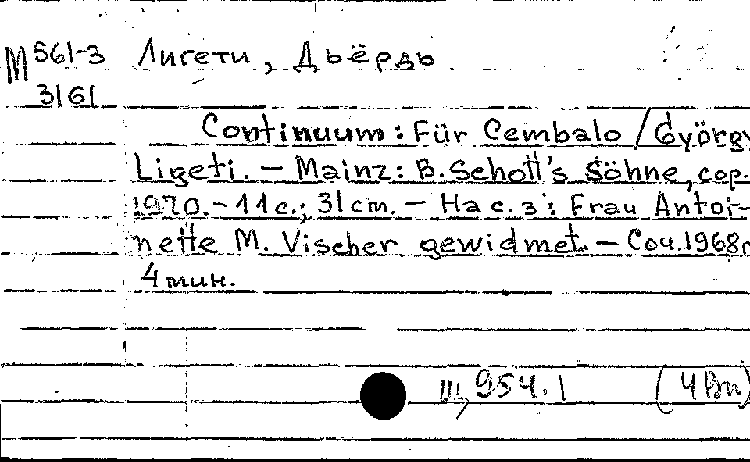 М 561-3 Лигети, Дьёрдь
3161
Continuum: Für Cembalo / György
Ligeti. – Mainz: B. Schott's Söhne, cop.
1970. – 11 с.; 31 cm. – На с. 3: Frau Antoi-
nette M. Vischer gewidmet. – Соч. 1968г
4 мин.
III, 954.1